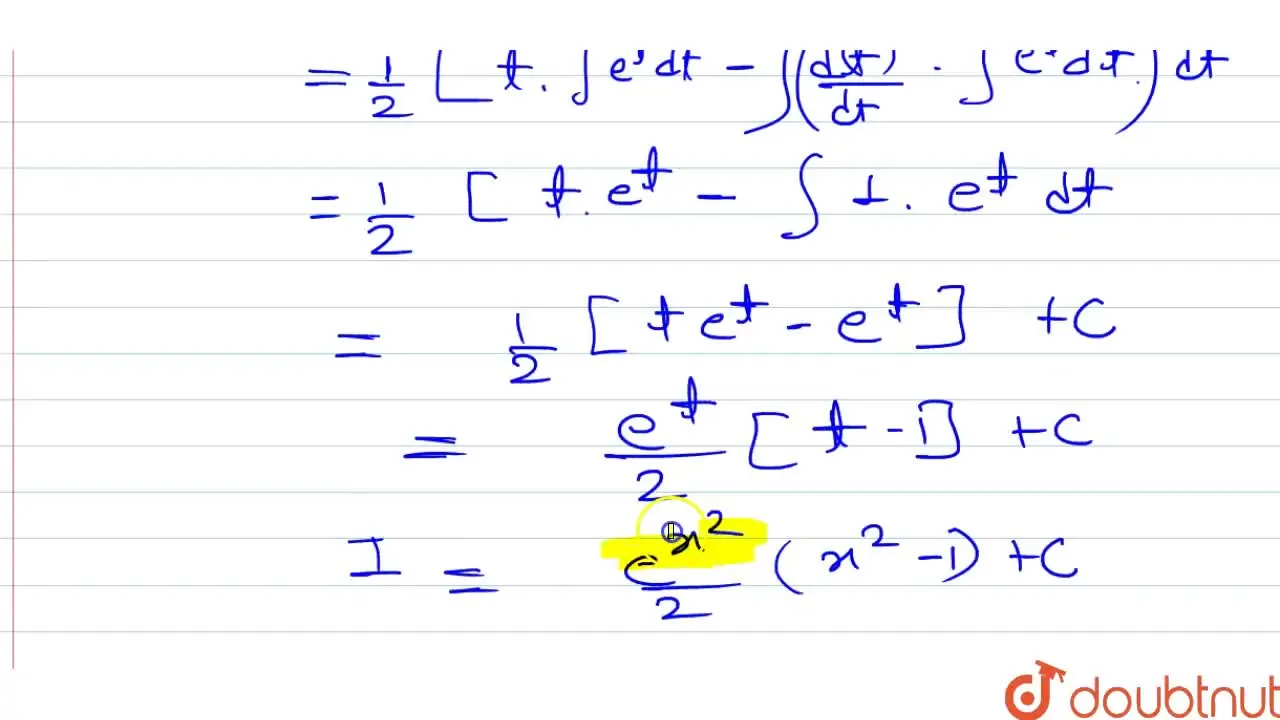 = 1/2 [ t. ∫ eᵗ dt - ∫ ( d(t)/dt . ∫ eᵗ dt. ) dt
= 1/2 [ t. eᵗ - ∫ 1. eᵗ dt
= 1/2 [ t eᵗ - eᵗ ] + C
= eᵗ/2 [ t - 1 ] + C
I = e^x²/2 ( x² - 1 ) + C
doubtnut